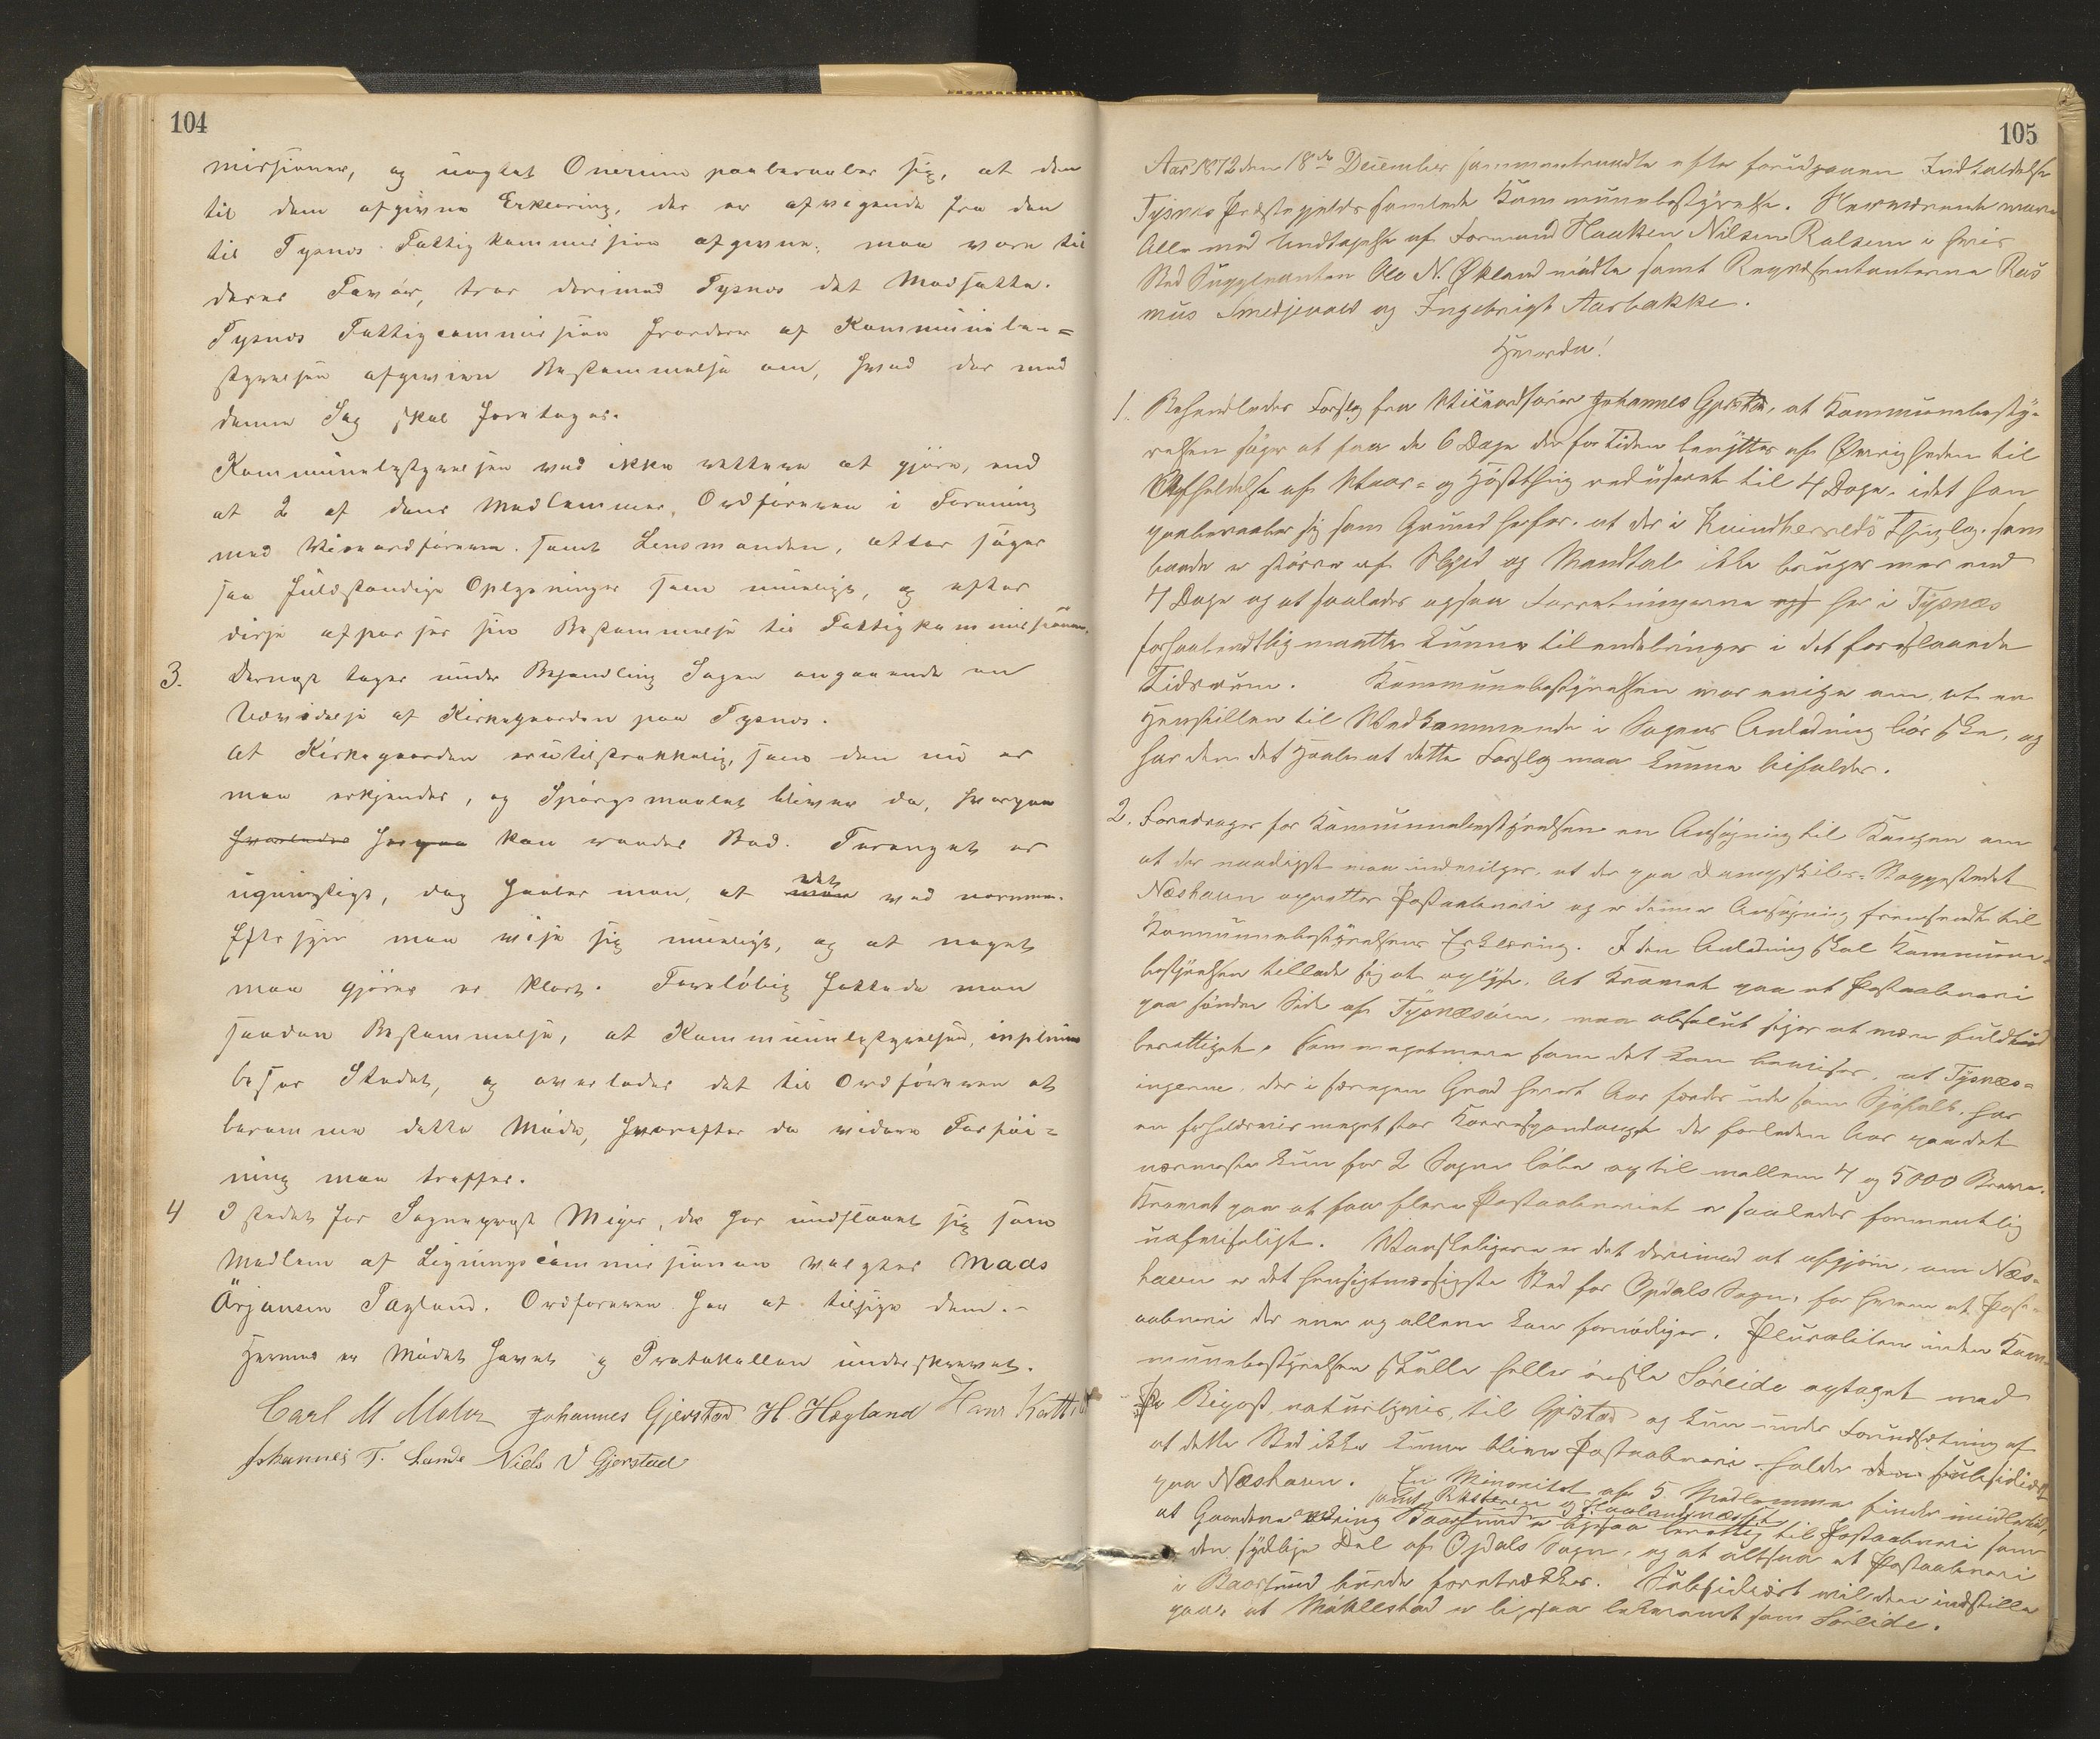 104
missionen, og uagtet Onerum paaberaaber sig, at den
til dem afgivne Erklæring, der er afvigende fra den
til Tysnæs Fattigkommission afgivne, maa være til
deres Favör, tror derimod Tysnæs det Modsatte.
Tysnæs Fattigcommission fordrer af Kommunebe=
styrelsen afgiven Bestemmelse om, hvad der med
denne Sag skal foretages.
Kommunebestyrelsen ved ikke rettere at gjöre, end
at 2 af dens Medlemmer, Ordföreren i Forening
med Viceordföreren samt Lensmanden, atter söger
saa fuldstændige Oplysninger som muligt, og efter
disse afpasser sin Bestemmelse til Fattigkommissionen.
3. Dernæst toges under Behandling Sagen angaaende en
Udvidelse af Kirkegaarden paa Tysnæs.
At Kirkegaarden er utilstrækkelig, som den nu er
maa erkjendes, og Spörgsmaalet bliver da, hvorpaa
hvorledes hvorpaa kan raades Bod. Terrænget er
ugunstigt, dog haaber man, at man det ved nærmere
Eftersyn maa vise sig muligt, og at noget
maa gjöres er klart. Forelöbig fattede man
saadan Bestemmelse, at Kommunebestyrelsen, in pleno
beser Stedet, og overlades det til Ordföreren at
beramme dette Möde, hvorefter da videre Forföi=
ning maa træffes.
4 I stedet for Sogneprest Meyer, der har undslaaet sig som
Medlem af Ligningscommissionen valgtes Mads
Ørjansen Tagland. Ordföreren har at tilsige dem.-
Hermed er Mödet hævet og Protokollen underskrevet.
Carl M Møler Johannes Gjerstad H. Høgland Hans
Johannes T. Lande Niels V Gjerstad
105
Aar 1872 den 18de December sammentraadte efter foregaaen Indkaldelse
Tysnæs Præstegjelds samlede Kommunebestyrelse. Nærværende vare
Alle med Undtagelse af Formand Haakon Nilsen Ralsem i hvis
Sted Suppleanten Ole N. Økland mödte samt Repræsentanterne Ras
mus Smedjevold og Ingebrigt Aarbakke.
Hvorda!
1. Behandledes Forslag fra Viceordförer Johannes Gjerstad, at Kommunebesty=
relsen söger at faa de 6 Dage der for Tiden benyttes af Øvrigheden til
Afholdelse af Vaar= og Höstthing reduseret til 4 Dage, idet han
paaberaaber sig som Grund herfor, at der i Kvindherreds Thinglag, som
baade er större af Skyld og Mandtal ikke bruges mer end
4 Dage og at saaledes ogsaa Forretningerne her i Tysnæs
forhaabentlig maatte kunne tilendebringes i det foreslaaede
Tidsrum. Kommunebestyrelsen var enige om, at en
Henstillen til Vedkommende i Sagens Anledning bör ske, og
har den det Haab at dette Forslag maa kunne bifaldes.
2. Foredroges for Kommunebestyrelsen en Ansögning til Kongen om
at der naadigst maa indvilges, at der paa Dampskibs=Stoppestedet
Næshavn oprettes Postaabneri og er denne Ansögning fremsendt til
Kommunebestyrelsens Erklæring. I den Anledning skal Kommune=
bestyrelsen tillade sig at oplyse, at Kravet paa et Postaabneri
paa söndre Side af Tysnæsöen, maa absolut siges at være fuldtud
berettiget, saameget mere som det kan bevises, at Tysnæs=
ingerne, der i særegen Grad hvert Aar færdes ude som Sjöfolk, har
en forholdsvis meget stor Korrespondance der forleden Aar paa det
nærmeste kun for 2 Sogne löber op til mellem 4 og 5000 Breve.
Kravet paa at faa flere Postaabnerier er saaledes formentlig
uafviseligt. Vanskeligere er det derimod at afgjöre, om Næs=
havn er det hensigtmæssigste Sted for Opdals Sogn, for hvem et Post=
aabneri der ene og allene kan fornödiges. Pluraliteten inden Kom=
munebestyrelsen skulle heller önske Söreide optaget med
Bipost, naturligvis, til Gjerstad og kun under Forudsætning af
at dette Sted ikke kunne blive Postaabneri holder den subsidiært
paa Næshavn. En Minoritet af 5 Medlemmer finder imidlertid,
at Gaardene omkring Baarsund samt Røsteren og Haalandsnæsset er ligesaa berettig til Postaabneri som
den sydlige Del af Opdals Sogn, og at altsaa et Postaabneri
i Baarsund burde foretrækkes. Subsidiært vil den indstille
paa, at Möklestad er ligesaa bekvemt som Söreide.